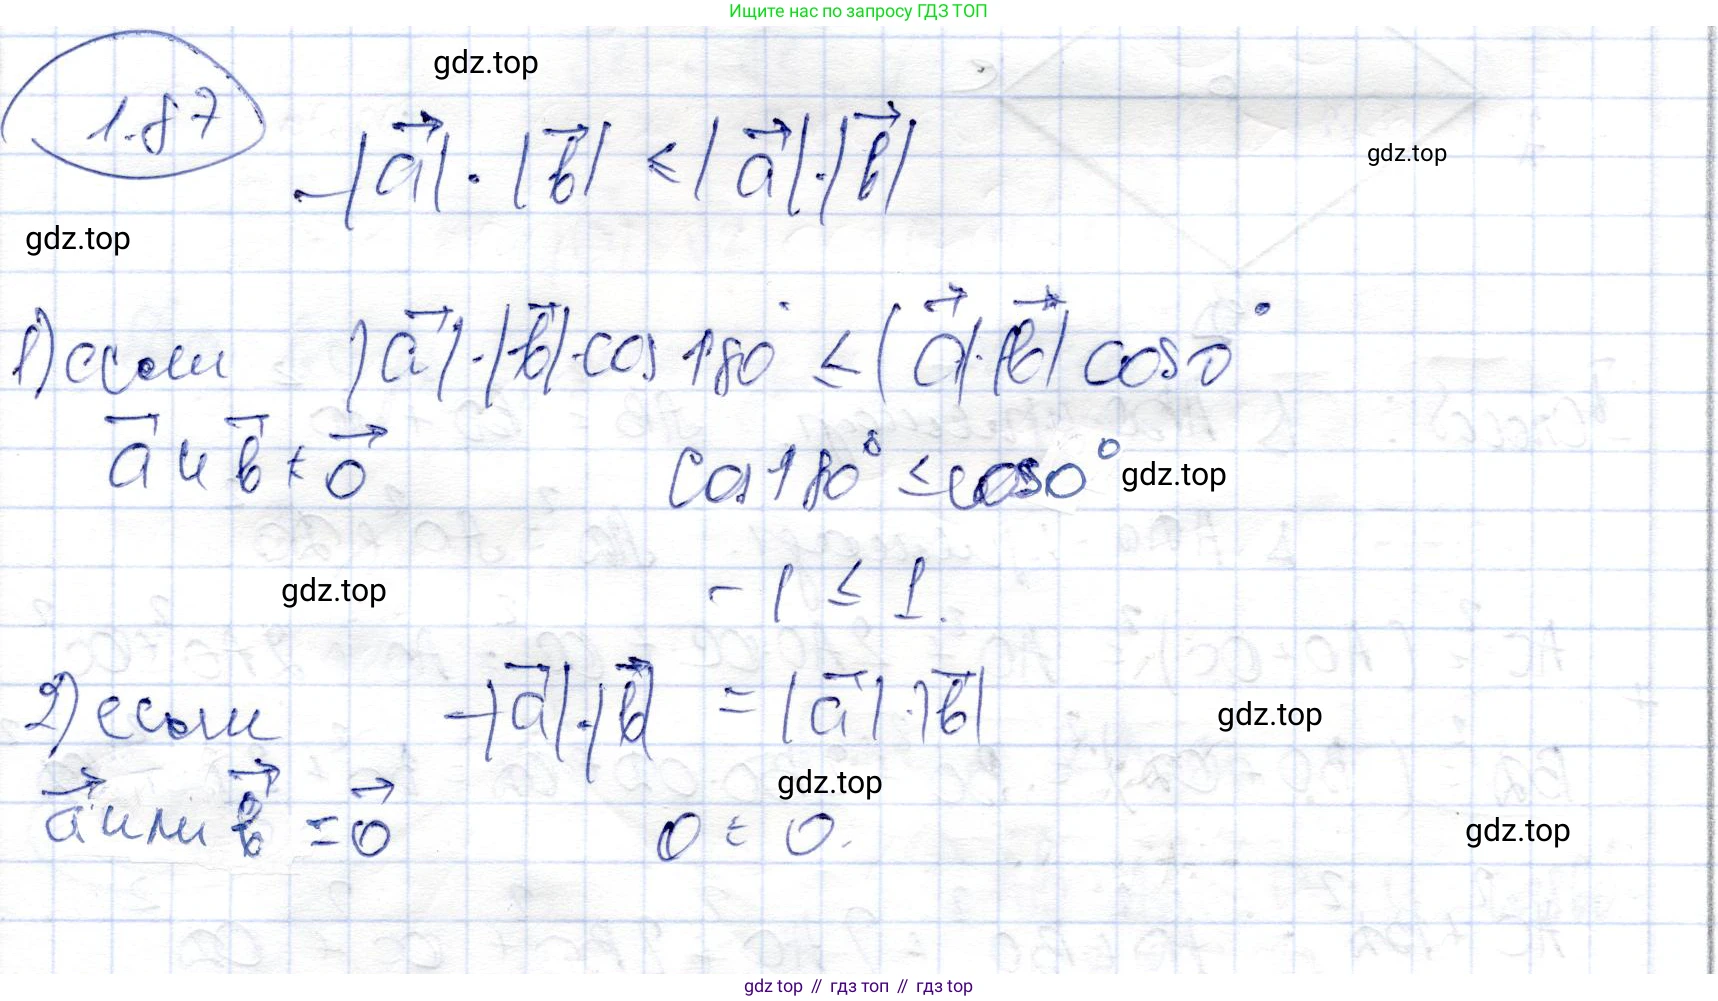 Ищите нас по запросу ГДЗ ТОП
gdz.top
1.87
-|a⃗| · |b⃗| ≤ |a⃗| · |b⃗|
gdz.top
gdz.top
1) если |a⃗| · |b⃗| · cos 180° ≤ |a⃗| · |b⃗| cos 0°
a⃗ и b⃗ ≠ 0⃗ cos 180° ≤ cos 0°
gdz.top
gdz.top
- 1 ≤ 1.
2) если -|a⃗| · |b⃗| = |a⃗| · |b⃗|
gdz.top
gdz.top
a⃗ или b⃗ = 0⃗ 0 = 0.
gdz.top
gdz top // гдз топ // гдз top